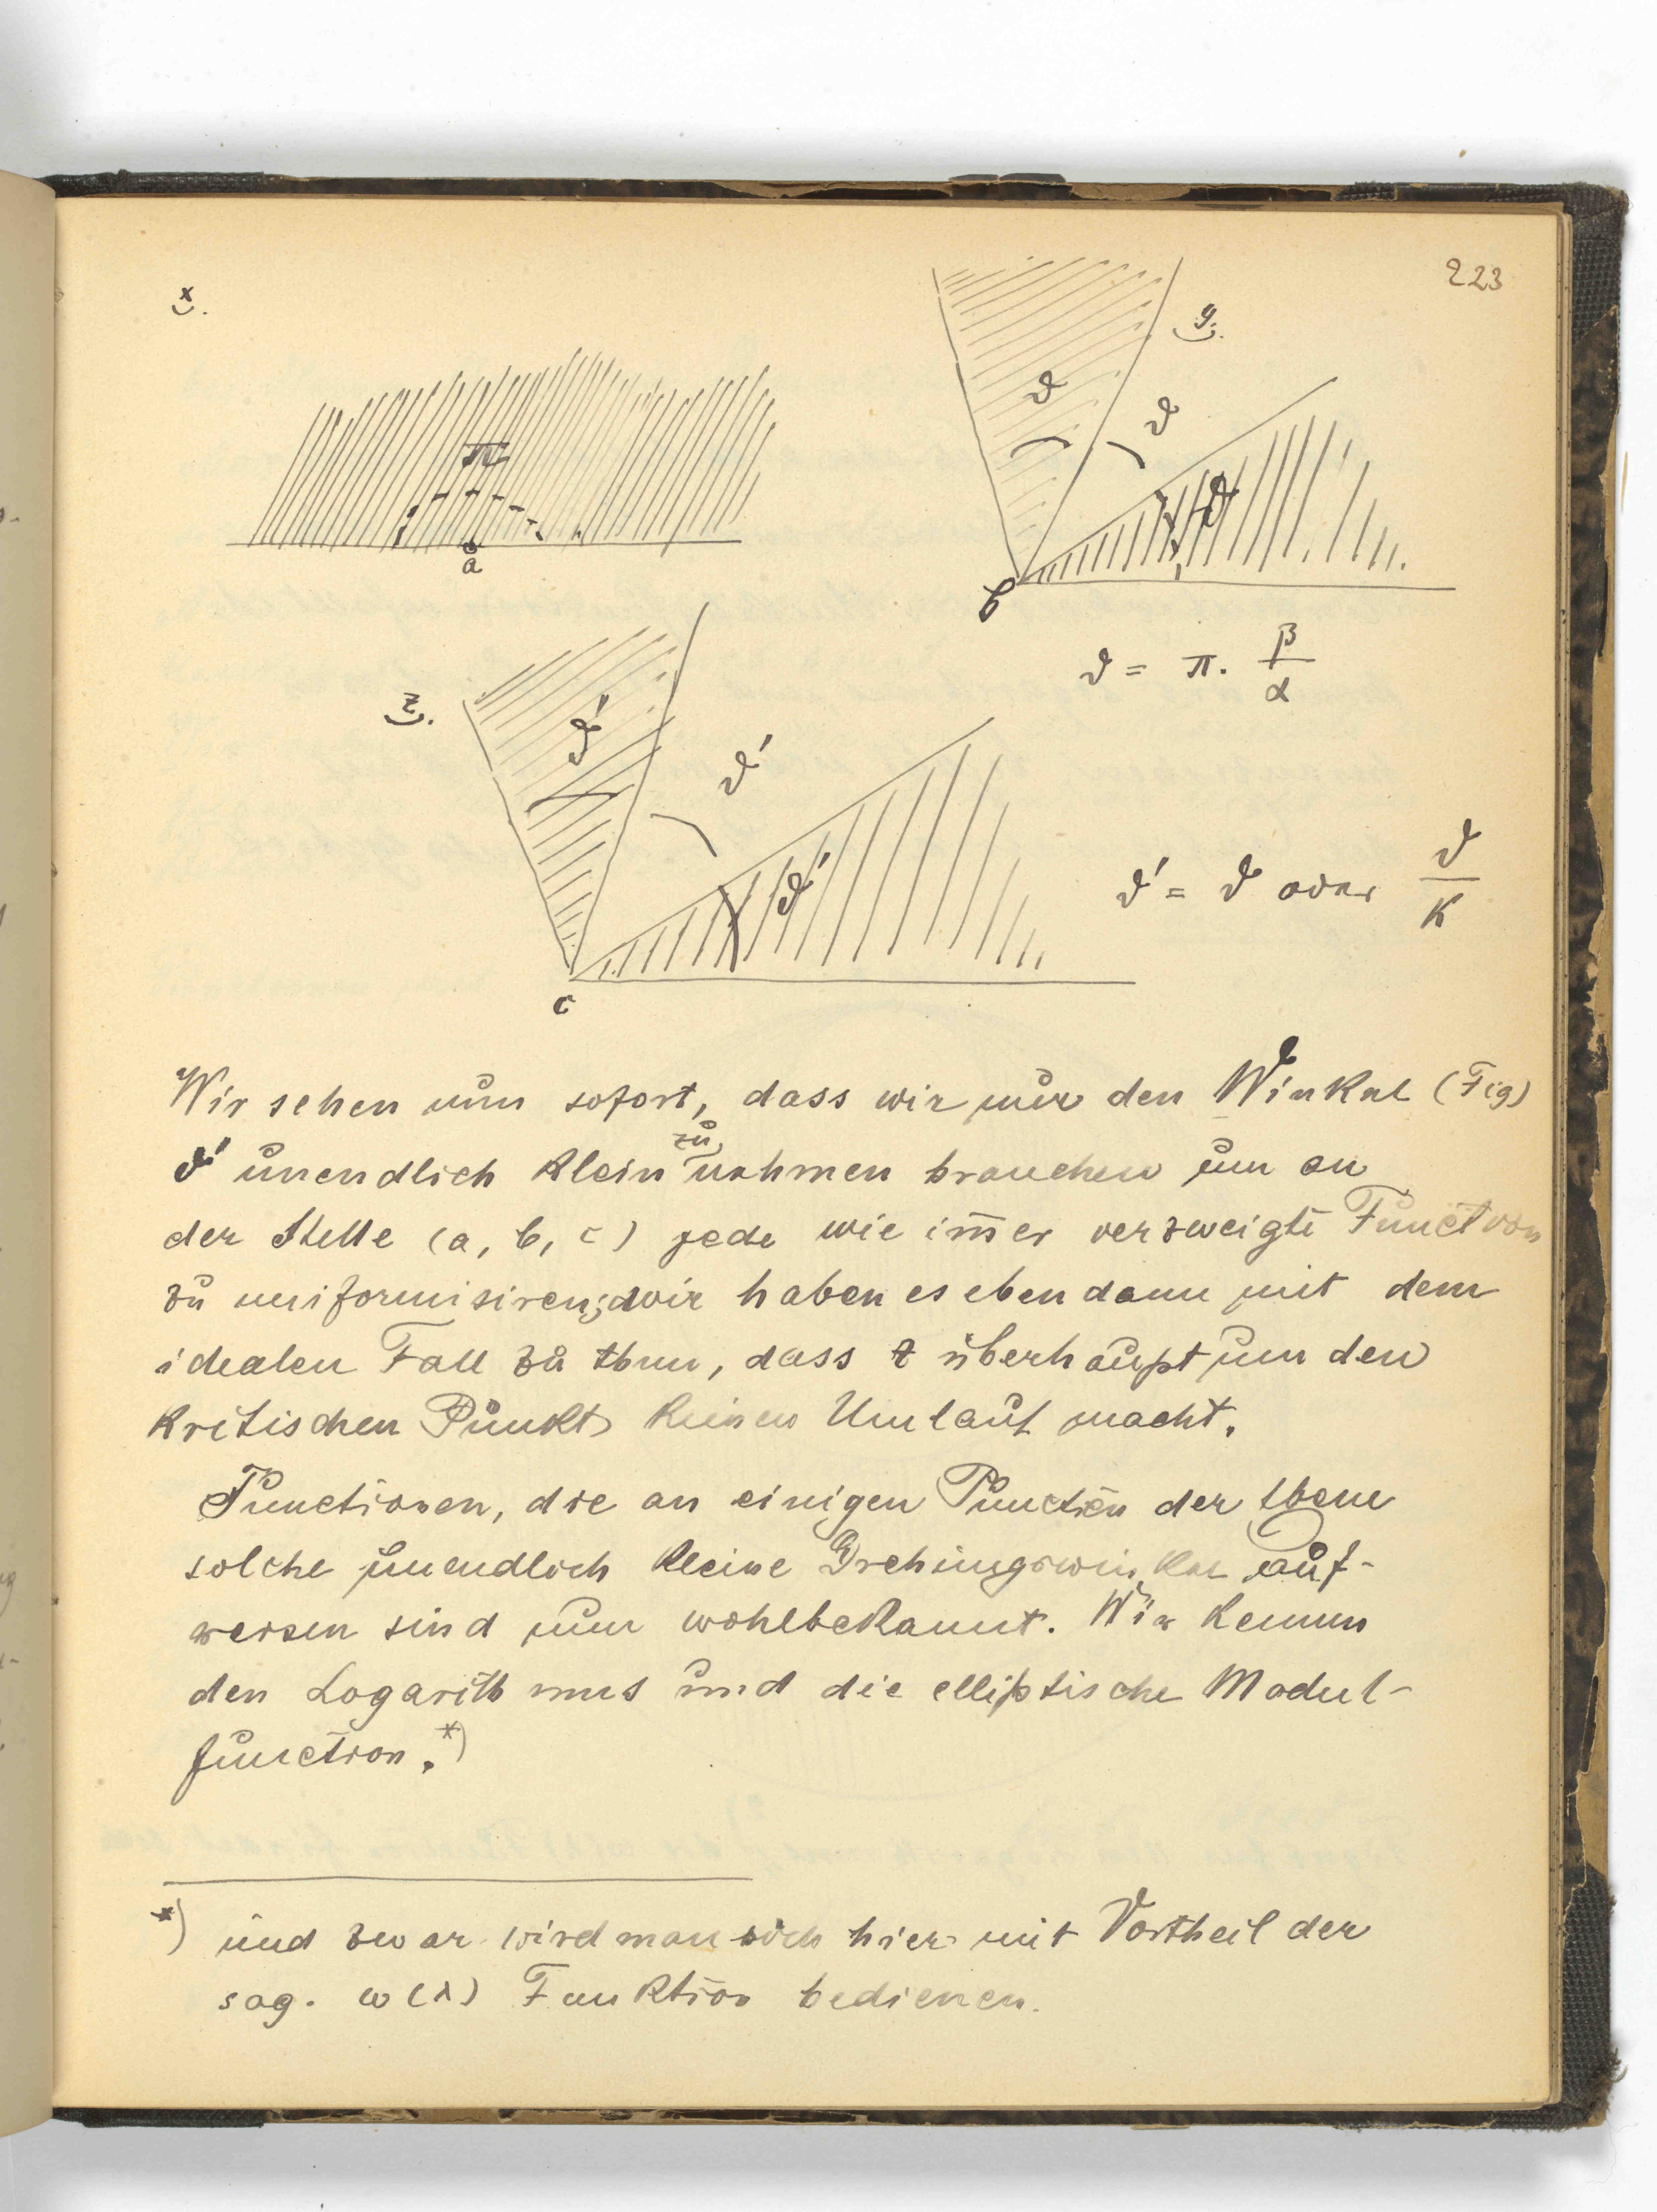 223
x.
y.
π
a
ϑ
ϑ
ϑ
b
ϑ = π. β/α
z.
ϑ'
ϑ'
ϑ'
c
ϑ' = ϑ oder ϑ/K
Wir sehen nun sofort, dass wir nur den Winkel (Fig)
ϑ' unendlich klein zu nehmen brauchen um an
der Stelle (a, b, c) jede wie im̄er verzweigte Function
zu uniformisiren; wir haben es eben dann mit dem
idealen Fall zu thun, dass z überhaupt um den
kritischen Punkt keinen Umlauf macht.
Functionen, die an einigen Puncten der Ebene
solche unendlich kleine Drehungswinkel auf-
weisen sind nun wohlbekannt. Wir kennen
den Logarithmus und die elliptische Modul-
function.*)
*) und zwar wird man sich hier mit Vortheil der
sog. ω(λ) Funktion bedienen.